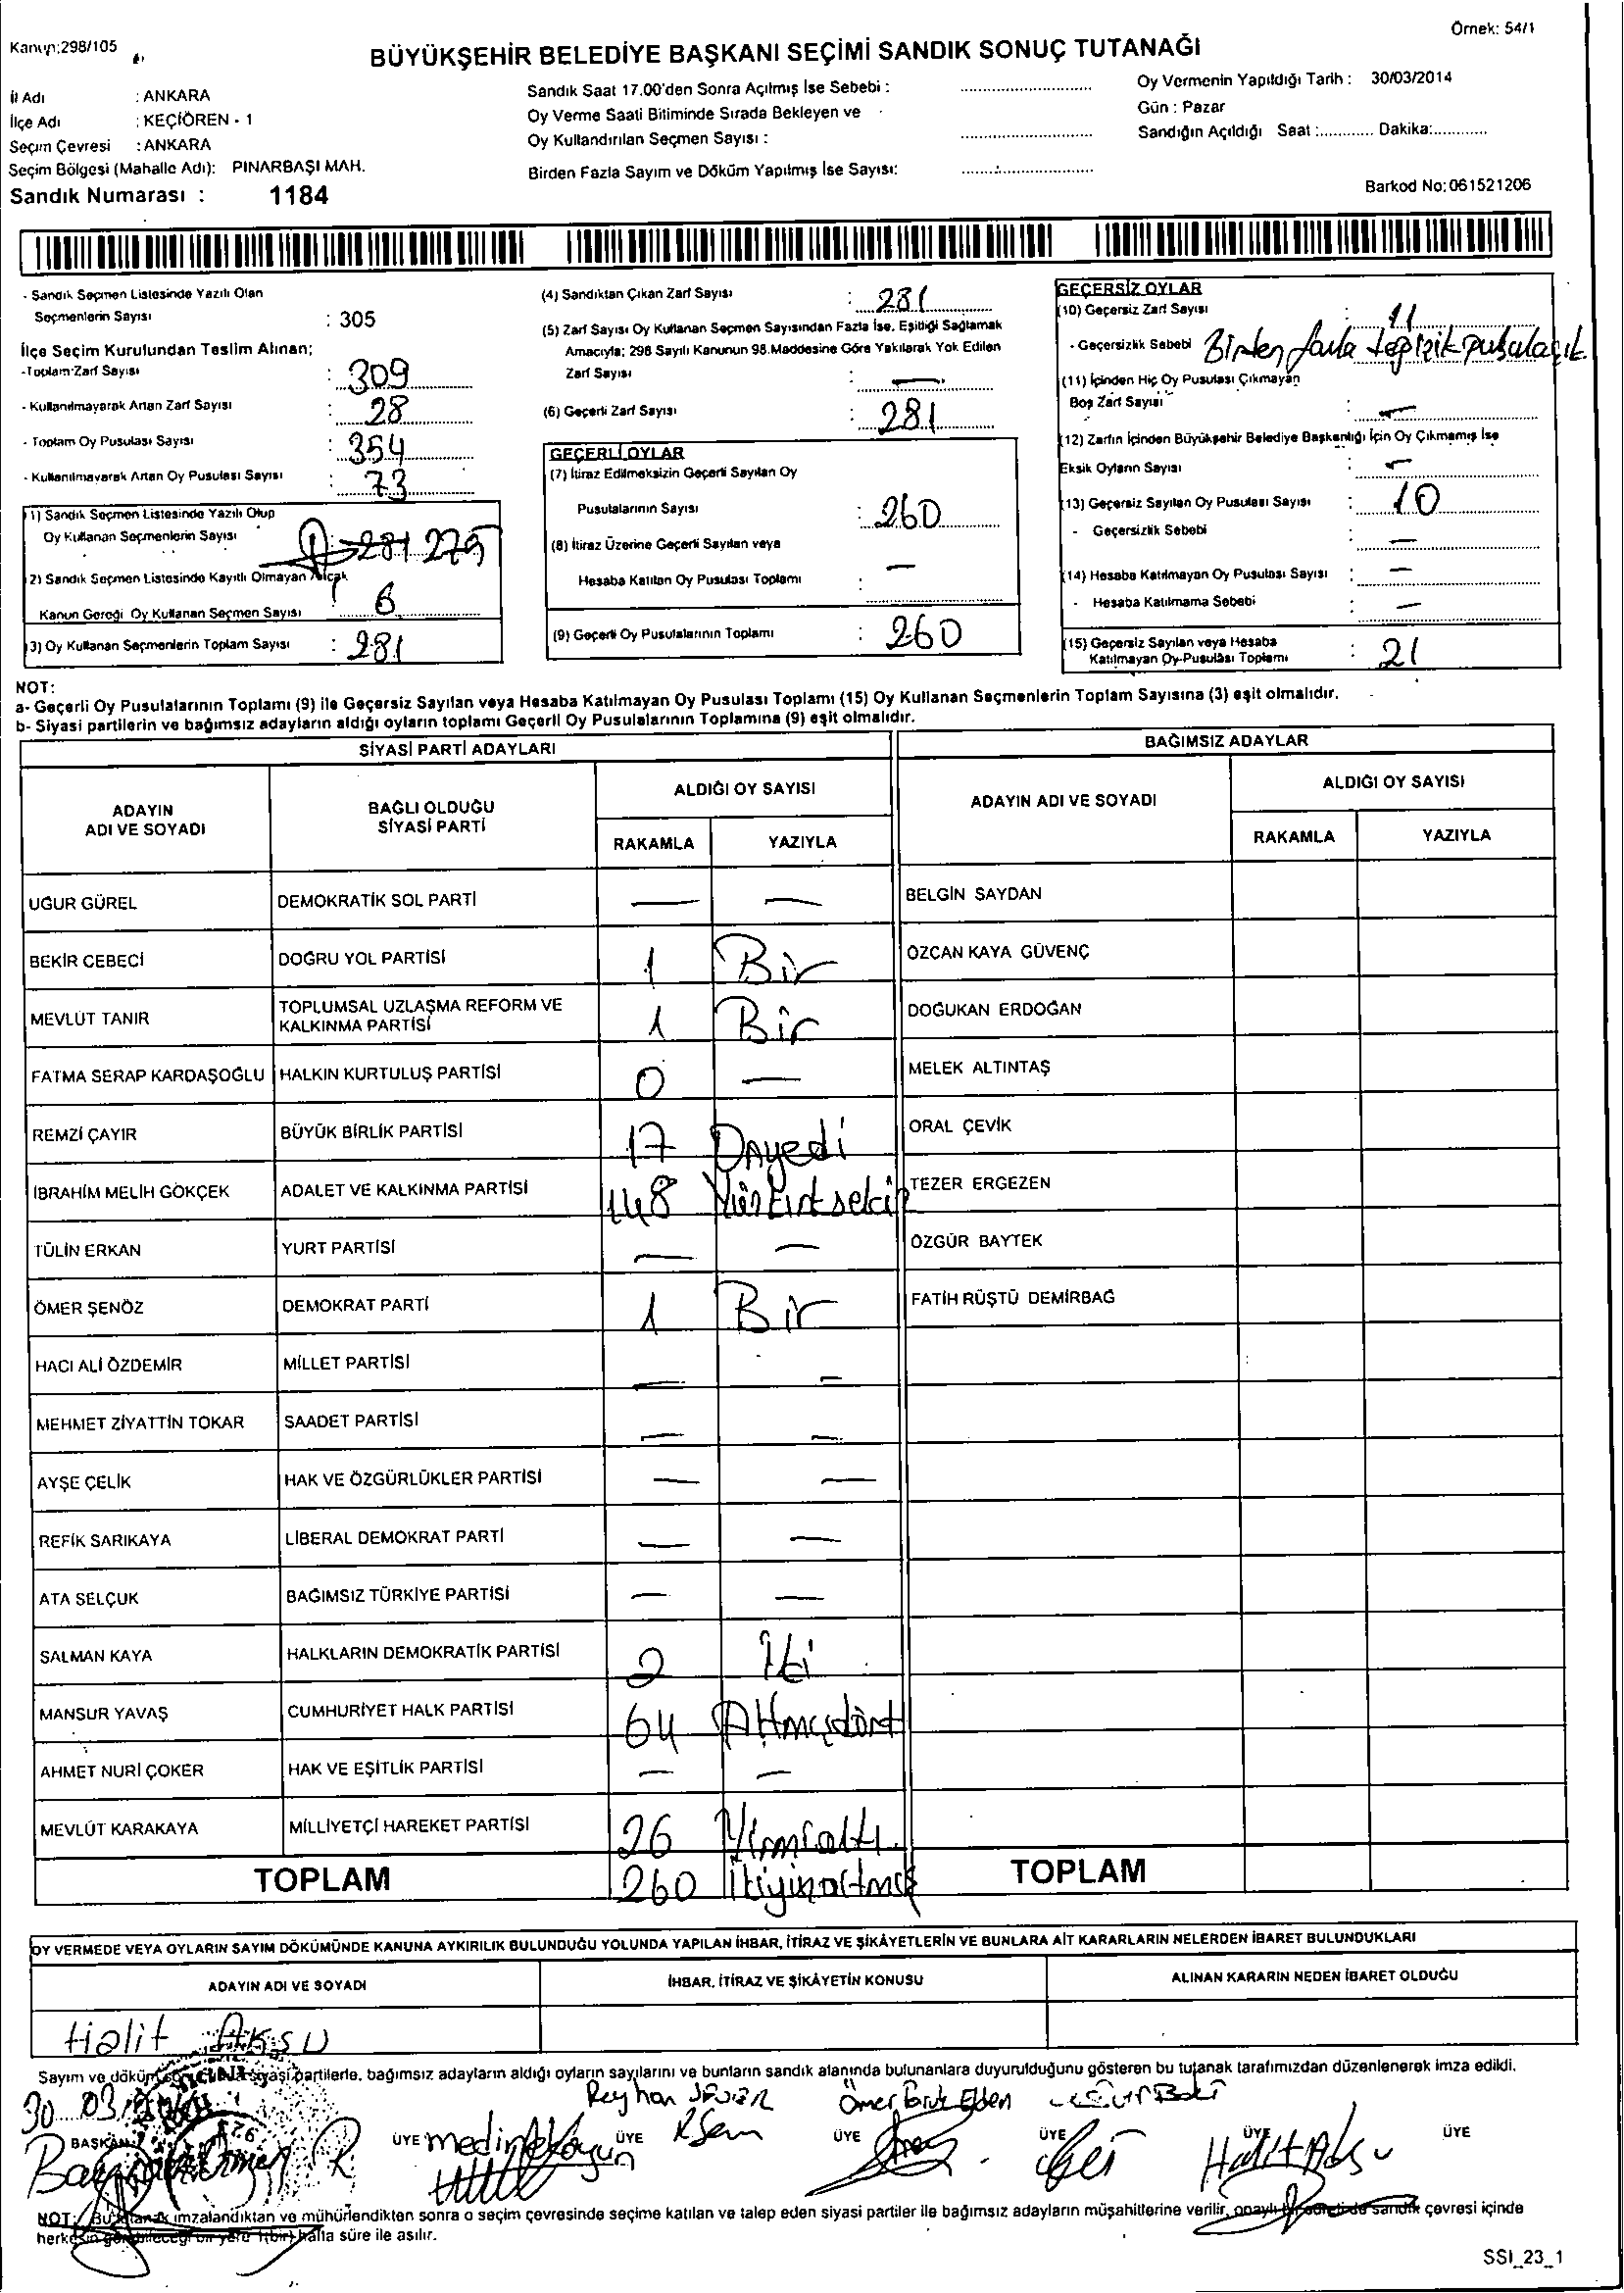 Kanun:298/105
Örnek: 54/1
BÜYÜKŞEHİR BELEDİYE BAŞKANI SEÇİMİ SANDIK SONUÇ TUTANAĞI
İl Adı : ANKARA
İlçe Adı : KEÇİÖREN - 1
Seçim Çevresi : ANKARA
Seçim Bölgesi (Mahalle Adı): PINARBAŞI MAH.
Sandık Numarası : 1184
Sandık Saat 17.00'den Sonra Açılmış İse Sebebi :
Oy Verme Saati Bitiminde Sırada Bekleyen ve
Oy Kullandırılan Seçmen Sayısı :
Birden Fazla Sayım ve Döküm Yapılmış İse Sayısı:
Oy Vermenin Yapıldığı Tarih : 30/03/2014
Gün : Pazar
Sandığın Açıldığı Saat :............ Dakika:............
Barkod No: 061521206
- Sandık Seçmen Listesinde Yazılı Olan
Seçmenlerin Sayısı : 305
İlçe Seçim Kurulundan Teslim Alınan;
-Toplam Zarf Sayısı : 309
- Kullanılmayarak Artan Zarf Sayısı : 28
- Toplam Oy Pusulası Sayısı : 354
- Kullanılmayarak Artan Oy Pusulası Sayısı : 73
(1) Sandık Seçmen Listesinde Yazılı Olup
Oy Kullanan Seçmenlerin Sayısı 281 275
(2) Sandık Seçmen Listesinde Kayıtlı Olmayan Ancak
Kanun Gereği Oy Kullanan Seçmen Sayısı : 6
(3) Oy Kullanan Seçmenlerin Toplam Sayısı : 281
(4) Sandıktan Çıkan Zarf Sayısı : 281
(5) Zarf Sayısı Oy Kullanan Seçmen Sayısından Fazla İse, Eşitliği Sağlamak
Amacıyla; 298 Sayılı Kanunun 98.Maddesine Göre Yakılarak Yok Edilen
Zarf Sayısı : —
(6) Geçerli Zarf Sayısı : 281
GEÇERLİ OYLAR
(7) İtiraz Edilmeksizin Geçerli Sayılan Oy
Pusulalarının Sayısı : 260
(8) İtiraz Üzerine Geçerli Sayılan veya
Hesaba Katılan Oy Pusulası Toplamı : —
(9) Geçerli Oy Pusulalarının Toplamı : 260
GEÇERSİZ OYLAR
(10) Geçersiz Zarf Sayısı : 11
- Geçersizlik Sebebi Birden fazla
(11) İçinden Hiç Oy Pusulası Çıkmayan
Boş Zarf Sayısı : —
(12) Zarfın İçinden Büyükşehir Belediye Başkanlığı İçin Oy Çıkmamış İse
Eksik Oyların Sayısı : —
(13) Geçersiz Sayılan Oy Pusulası Sayısı : 10
- Geçersizlik Sebebi : —
(14) Hesaba Katılmayan Oy Pusulası Sayısı : —
- Hesaba Katılmama Sebebi : —
(15) Geçersiz Sayılan veya Hesaba
Katılmayan Oy Pusulası Toplamı : 21
NOT:
a- Geçerli Oy Pusulalarının Toplamı (9) ile Geçersiz Sayılan veya Hesaba Katılmayan Oy Pusulası Toplamı (15) Oy Kullanan Seçmenlerin Toplam Sayısına (3) eşit olmalıdır.
b- Siyasi partilerin ve bağımsız adayların aldığı oyların toplamı Geçerli Oy Pusulalarının Toplamına (9) eşit olmalıdır.
SİYASİ PARTİ ADAYLARI
ADAYIN ADI VE SOYADI BAĞLI OLDUĞU SİYASİ PARTİ ALDIĞI OY SAYISI
RAKAMLA YAZIYLA
UĞUR GÜREL DEMOKRATİK SOL PARTİ — —
BEKİR CEBECİ DOĞRU YOL PARTİSİ 1 Bir
MEVLÜT TANIR TOPLUMSAL UZLAŞMA REFORM VE KALKINMA PARTİSİ 1 Bir
FATMA SERAP KARDAŞOĞLU HALKIN KURTULUŞ PARTİSİ 0 —
REMZİ ÇAYIR BÜYÜK BİRLİK PARTİSİ 17 Onyedi
İBRAHİM MELİH GÖKÇEK ADALET VE KALKINMA PARTİSİ 148 Yüzkırksekiz
TÜLİN ERKAN YURT PARTİSİ — —
ÖMER ŞENÖZ DEMOKRAT PARTİ 1 Bir
HACI ALİ ÖZDEMİR MİLLET PARTİSİ — —
MEHMET ZİYATTİN TOKAR SAADET PARTİSİ — —
AYŞE ÇELİK HAK VE ÖZGÜRLÜKLER PARTİSİ — —
REFİK SARIKAYA LİBERAL DEMOKRAT PARTİ — —
ATA SELÇUK BAĞIMSIZ TÜRKİYE PARTİSİ — —
SALMAN KAYA HALKLARIN DEMOKRATİK PARTİSİ 2 İki
MANSUR YAVAŞ CUMHURİYET HALK PARTİSİ 64 Altmışdört
AHMET NURİ ÇOKER HAK VE EŞİTLİK PARTİSİ — —
MEVLÜT KARAKAYA MİLLİYETÇİ HAREKET PARTİSİ 26 Yirmialtı
TOPLAM 260 İkiyüzaltmış
BAĞIMSIZ ADAYLAR
ADAYIN ADI VE SOYADI ALDIĞI OY SAYISI
RAKAMLA YAZIYLA
BELGİN SAYDAN
ÖZCAN KAYA GÜVENÇ
DOĞUKAN ERDOĞAN
MELEK ALTINTAŞ
ORAL ÇEVİK
TEZER ERGEZEN
ÖZGÜR BAYTEK
FATİH RÜŞTÜ DEMİRBAĞ
TOPLAM
OY VERMEDE VEYA OYLARIN SAYIM DÖKÜMÜNDE KANUNA AYKIRILIK BULUNDUĞU YOLUNDA YAPILAN İHBAR, İTİRAZ VE ŞİKÂYETLERİN VE BUNLARA AİT KARARLARIN NELERDEN İBARET BULUNDUKLARI
ADAYIN ADI VE SOYADI İHBAR, İTİRAZ VE ŞİKÂYETİN KONUSU ALINAN KARARIN NEDEN İBARET OLDUĞU
Halit AKSU
Sayım ve döküm siyasi partilerle, bağımsız adayların aldığı oyların sayılarını ve bunların sandık alanında bulunanlara duyurulduğunu gösteren bu tutanak tarafımızdan düzenlenerek imza edildi.
30 03
Reyhan Ömer Faruk
BAŞKAN ÜYE ÜYE ÜYE ÜYE ÜYE ÜYE
Medine Halit Aksu
NOT: Bu tutanak imzalandıktan ve mühürlendikten sonra o seçim çevresinde seçime katılan ve talep eden siyasi partiler ile bağımsız adayların müşahitlerine verilir, onaylı bir sureti de sandık çevresi içinde
herkesin görebileceği bir yere 1(bir) hafta süre ile asılır.
SSI_23_1